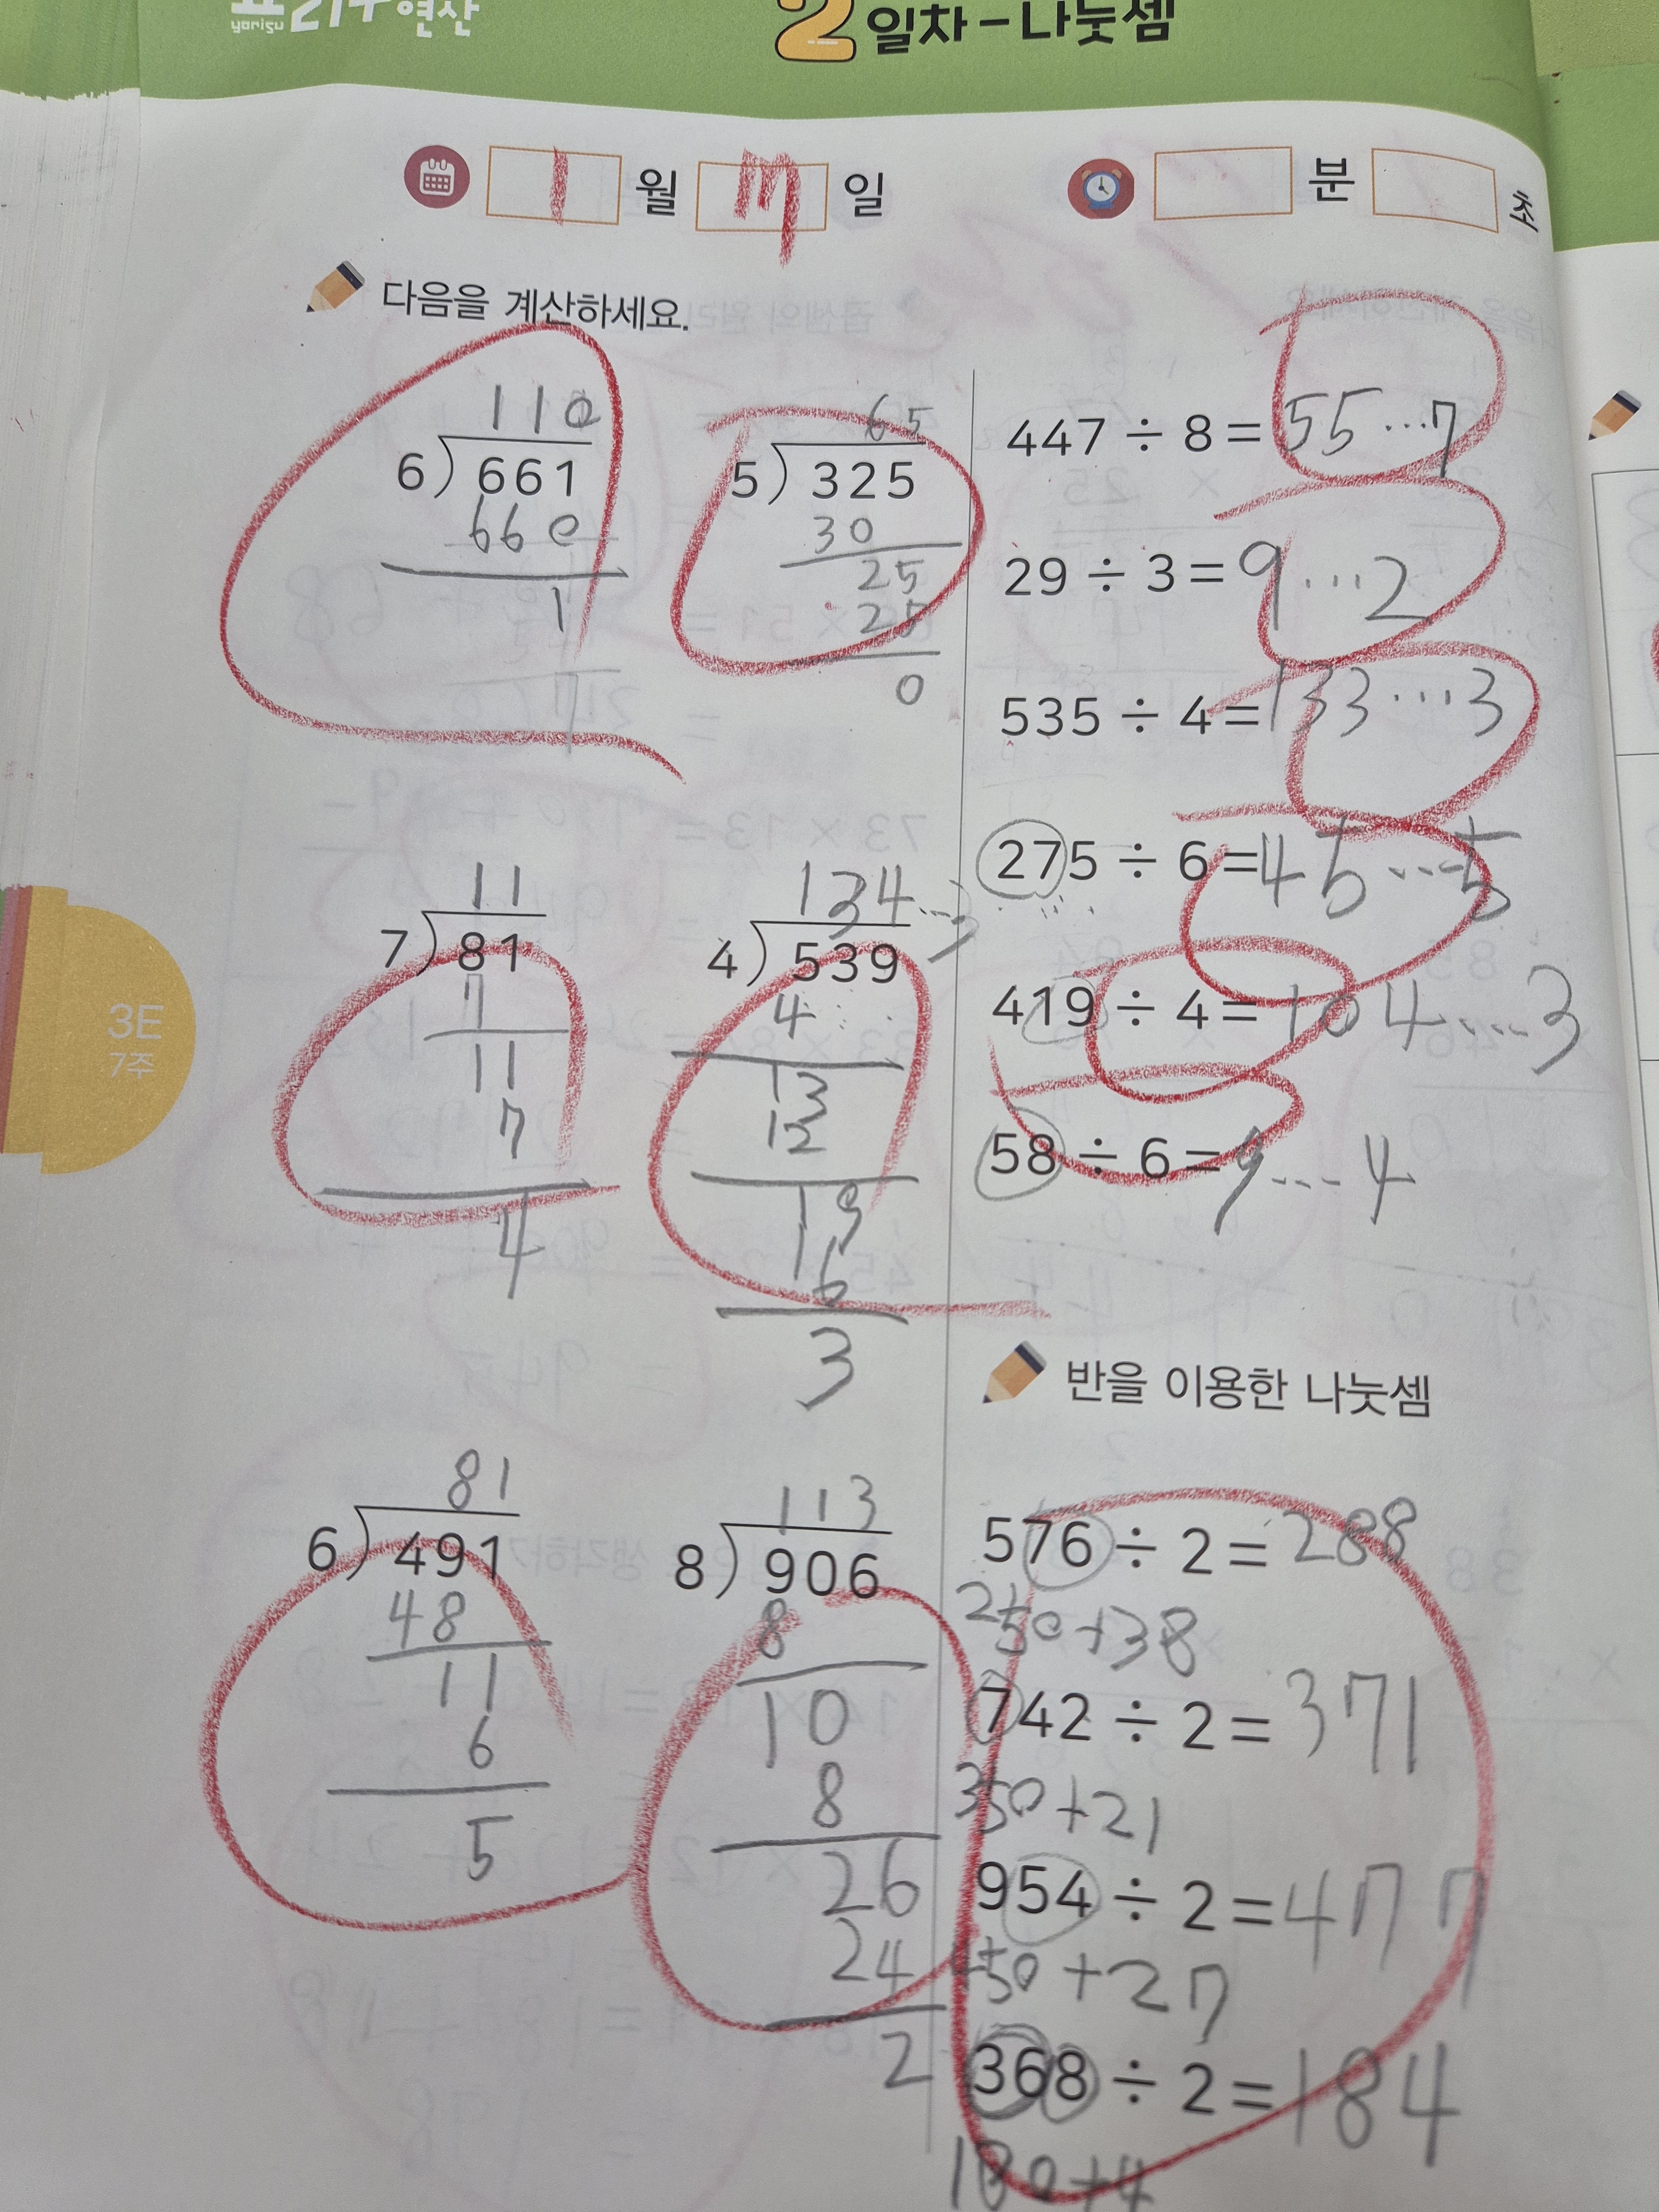 yorisu 요리수 연산
2일차 - 나눗셈
1 월 7 일 분 초
다음을 계산하세요.
110
6 ) 661
660
1
65
5 ) 325
30
25
25
0
11
7 ) 81
7
11
7
4
134...3
4 ) 539
4
13
12
19
16
3
81
6 ) 491
48
11
6
5
113
8 ) 906
8
10
8
26
24
2
447 ÷ 8 = 55...7
29 ÷ 3 = 9...2
535 ÷ 4 = 133...3
275 ÷ 6 = 45...5
419 ÷ 4 = 104...3
58 ÷ 6 = 9...4
반을 이용한 나눗셈
576 ÷ 2 = 288
250+38
742 ÷ 2 = 371
350+21
954 ÷ 2 = 477
450+27
368 ÷ 2 = 184
180+4
3E
7주